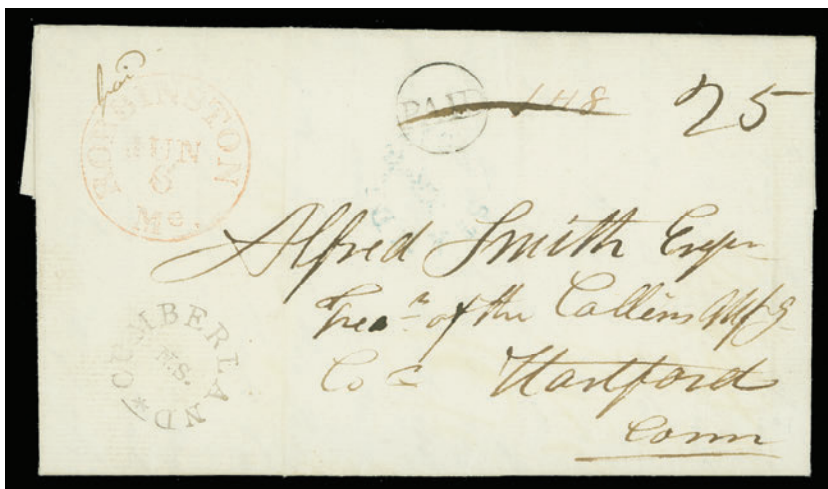 paid
ROBBINSTON
JUN
8
Me.
PAID
1 4 8
25
Alfred Smith Esqr
Trear of the Collins Mfg
Co
Hartford
Conn
CUMBERLAND
N.S.